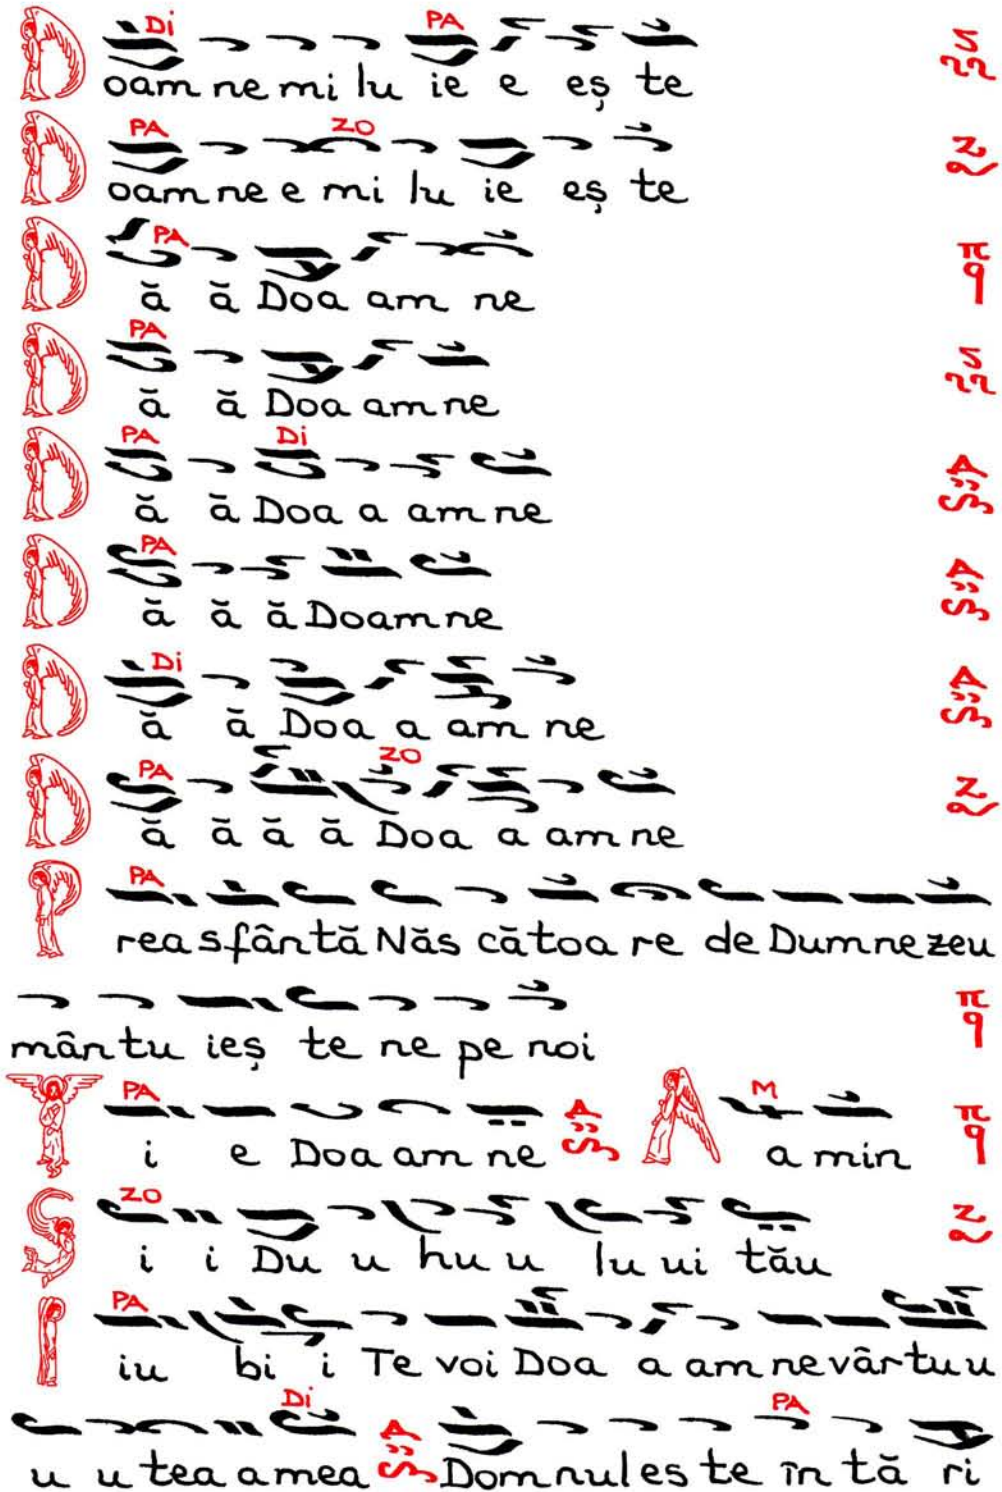 Di PA
Doamne mi lu ie e eș te
PA ZO
Doamne e mi lu ie eș te
PA
D ă ă Doa am ne
PA
D ă ă Doa am ne
PA Di
D ă ă Doa a am ne
PA
D ă ă ă Doam ne
Di
D ă ă Doa a am ne
PA ZO
D ă ă ă ă Doa a am ne
PA
Prea sfântă Năs cătoa re de Dumnezeu
mântu ieș te ne pe noi
PA M
Ț i e Doa am ne A a min
ZO
Ș i i Du u hu u lu ui tău
PA
I iu bi i Te voi Doa a am ne vârtu u
Di PA
u u tea a mea Domnul es te în tă ri